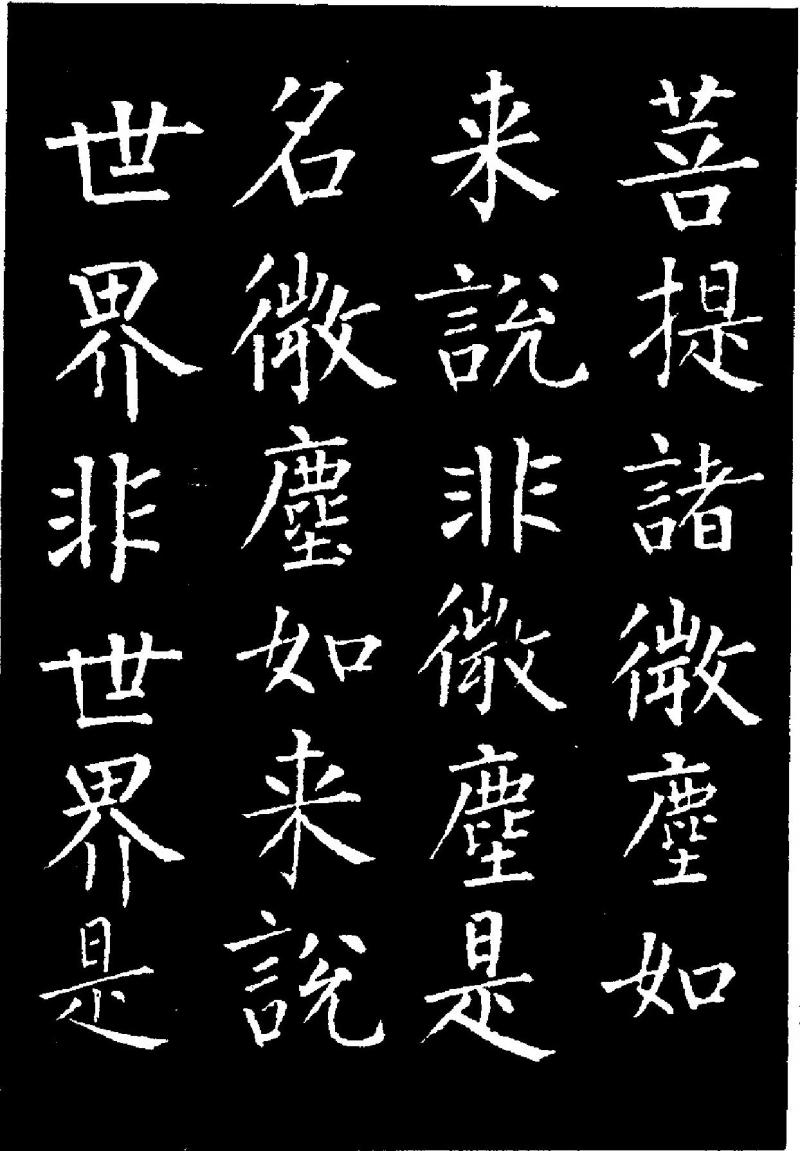 菩提諸微塵如
来說非微塵是
名微塵如来說
世界非世界是